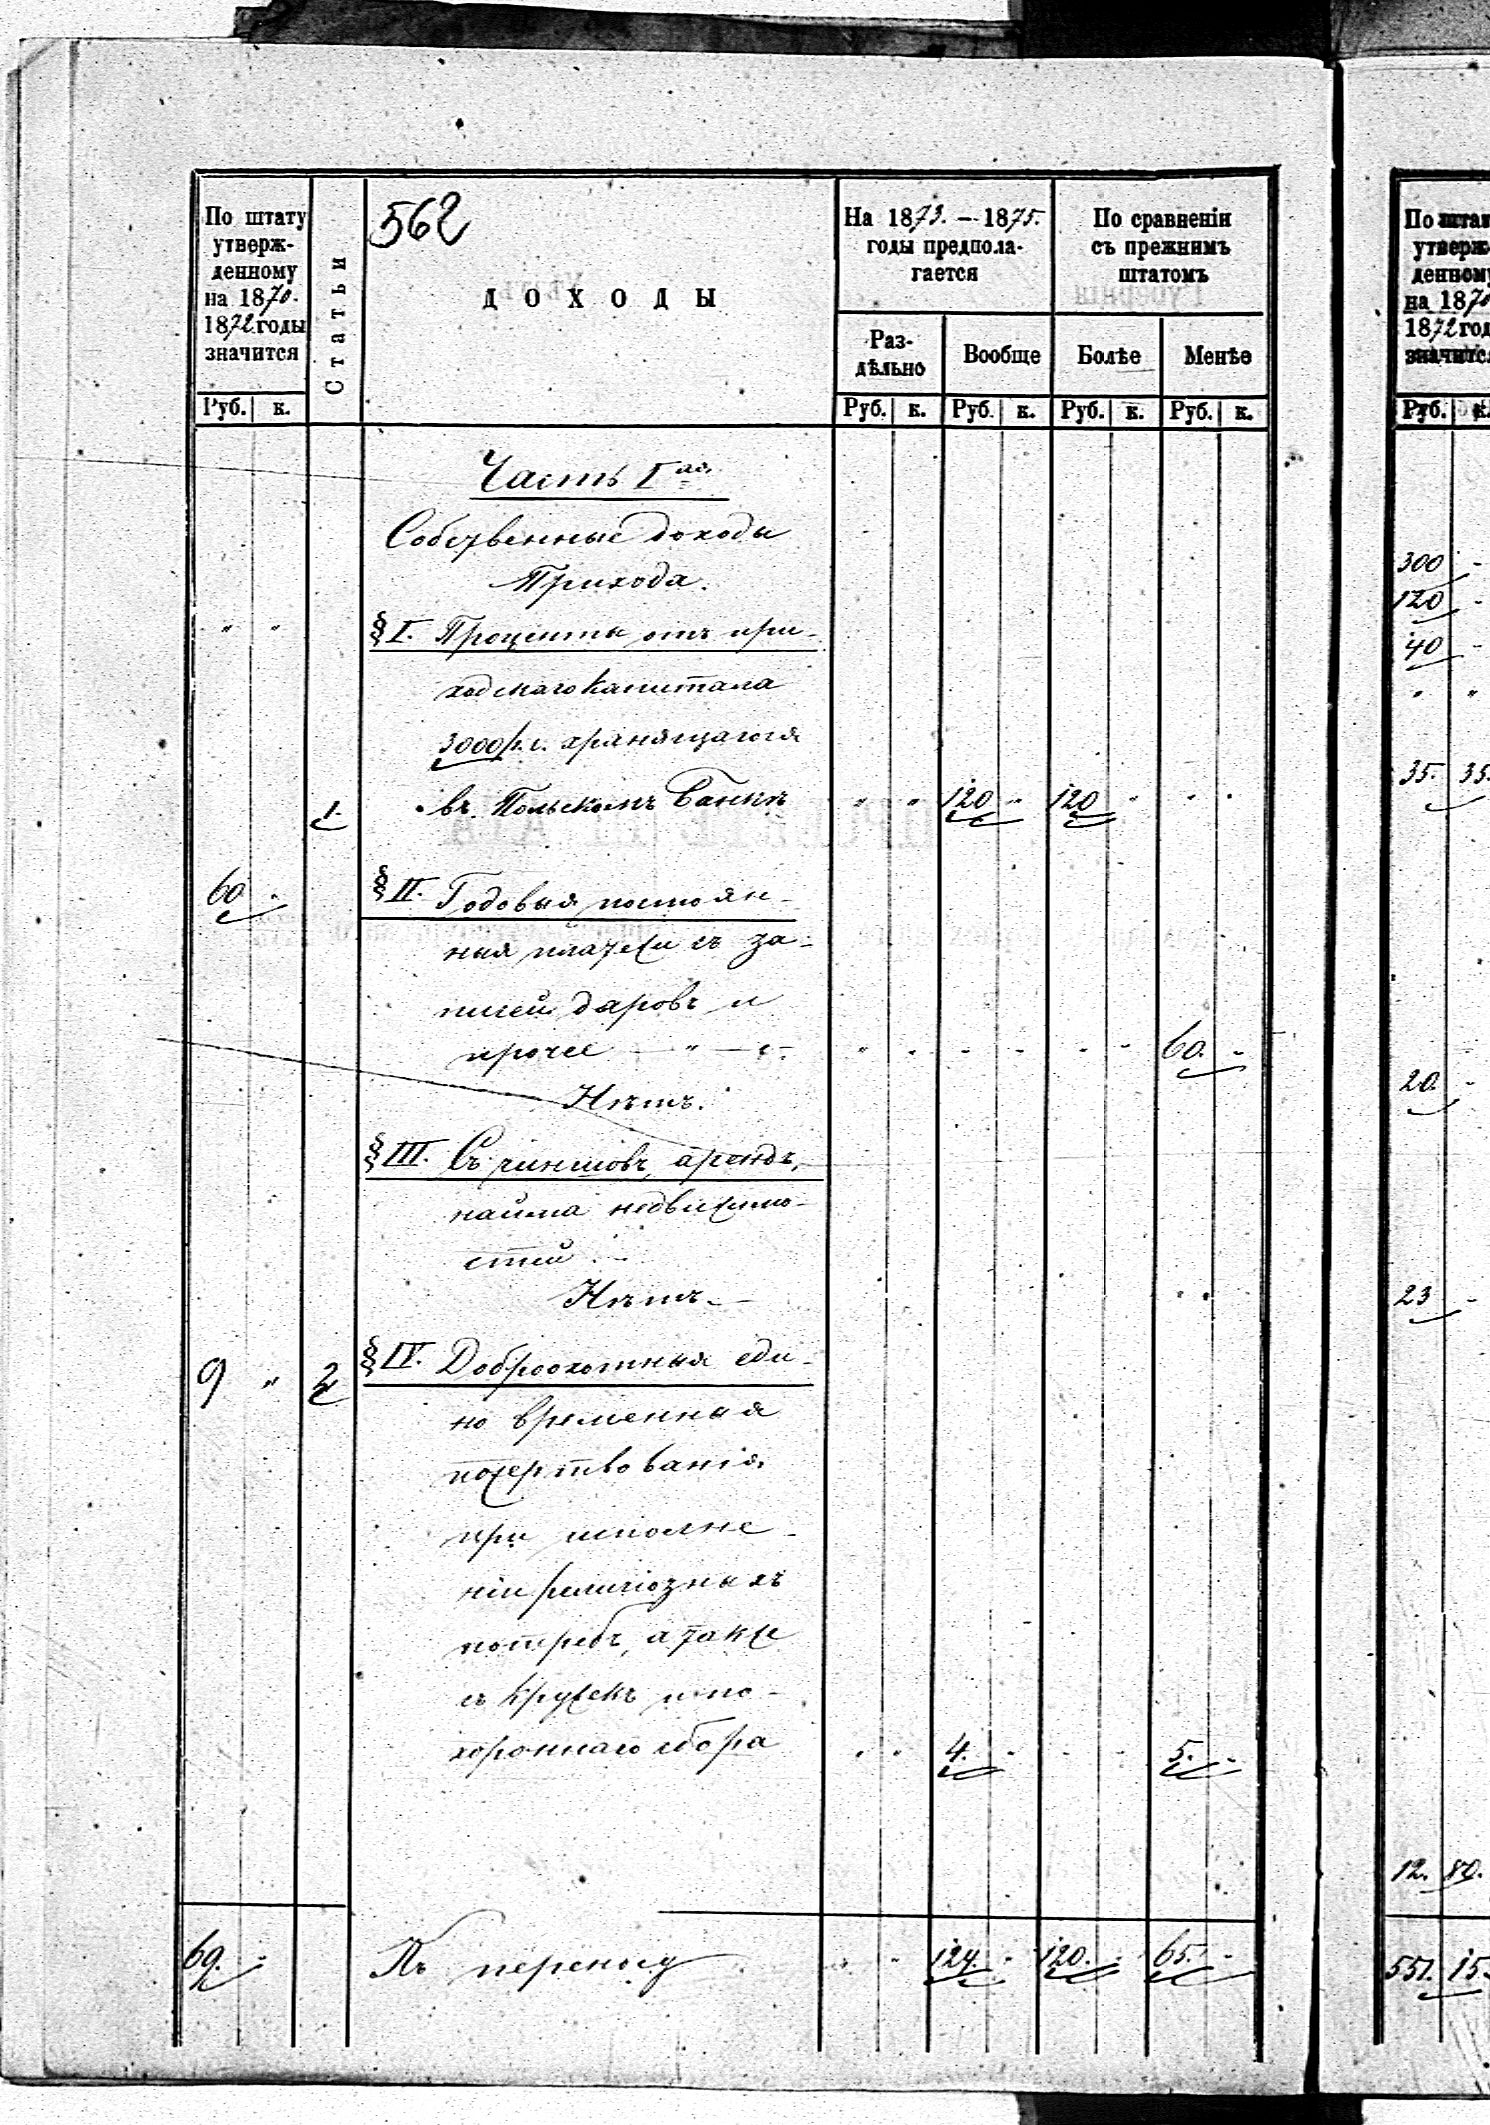 562
По штату
утверж-
денному
на 1870.
1872 годы
значится
Статьи
ДОХОДЫ
На 1873. – 1875.
годы предпола-
гается
По сравненію
съ прежнимъ
штатомъ
Раз-
дѣльно
Вообще
Болѣе
Менѣе
Руб. к.
Руб. к. Руб. к. Руб. к. Руб. к.
Часть I ая.
Собственные доходы
Прихода.
" " § I. Проценты отъ при-
ходскаго капитала
3000 р. с. хранящагося
1. въ Польскомъ Банкѣ " " 120 " 120 " " "
60 - § II. Годовыя постоян-
ныя платежи съ за-
писей даровъ и
прочее — " — " - - - - - 60. -
Нѣтъ.
§ III. Съ чиншовъ, арендъ,
найма недвижимо-
стей
Нѣтъ. -
9 " 2 § IV. Доброхотныя еди-
но временныя
пожертвованія
при исполне-
ніи религіозныхъ
потребъ, а также
съ кружекъ и по-
хороннаго сбора " " 4. - - - 5. -
69. - Къ переносу " - 124. - 120. - 65. -
По штат
утверж
денному
на 1870
1872 год
значитс
Руб. к.
300 -
120 -
40 -
" "
35. 35.
20. -
23 -
12. 80.
551. 15.